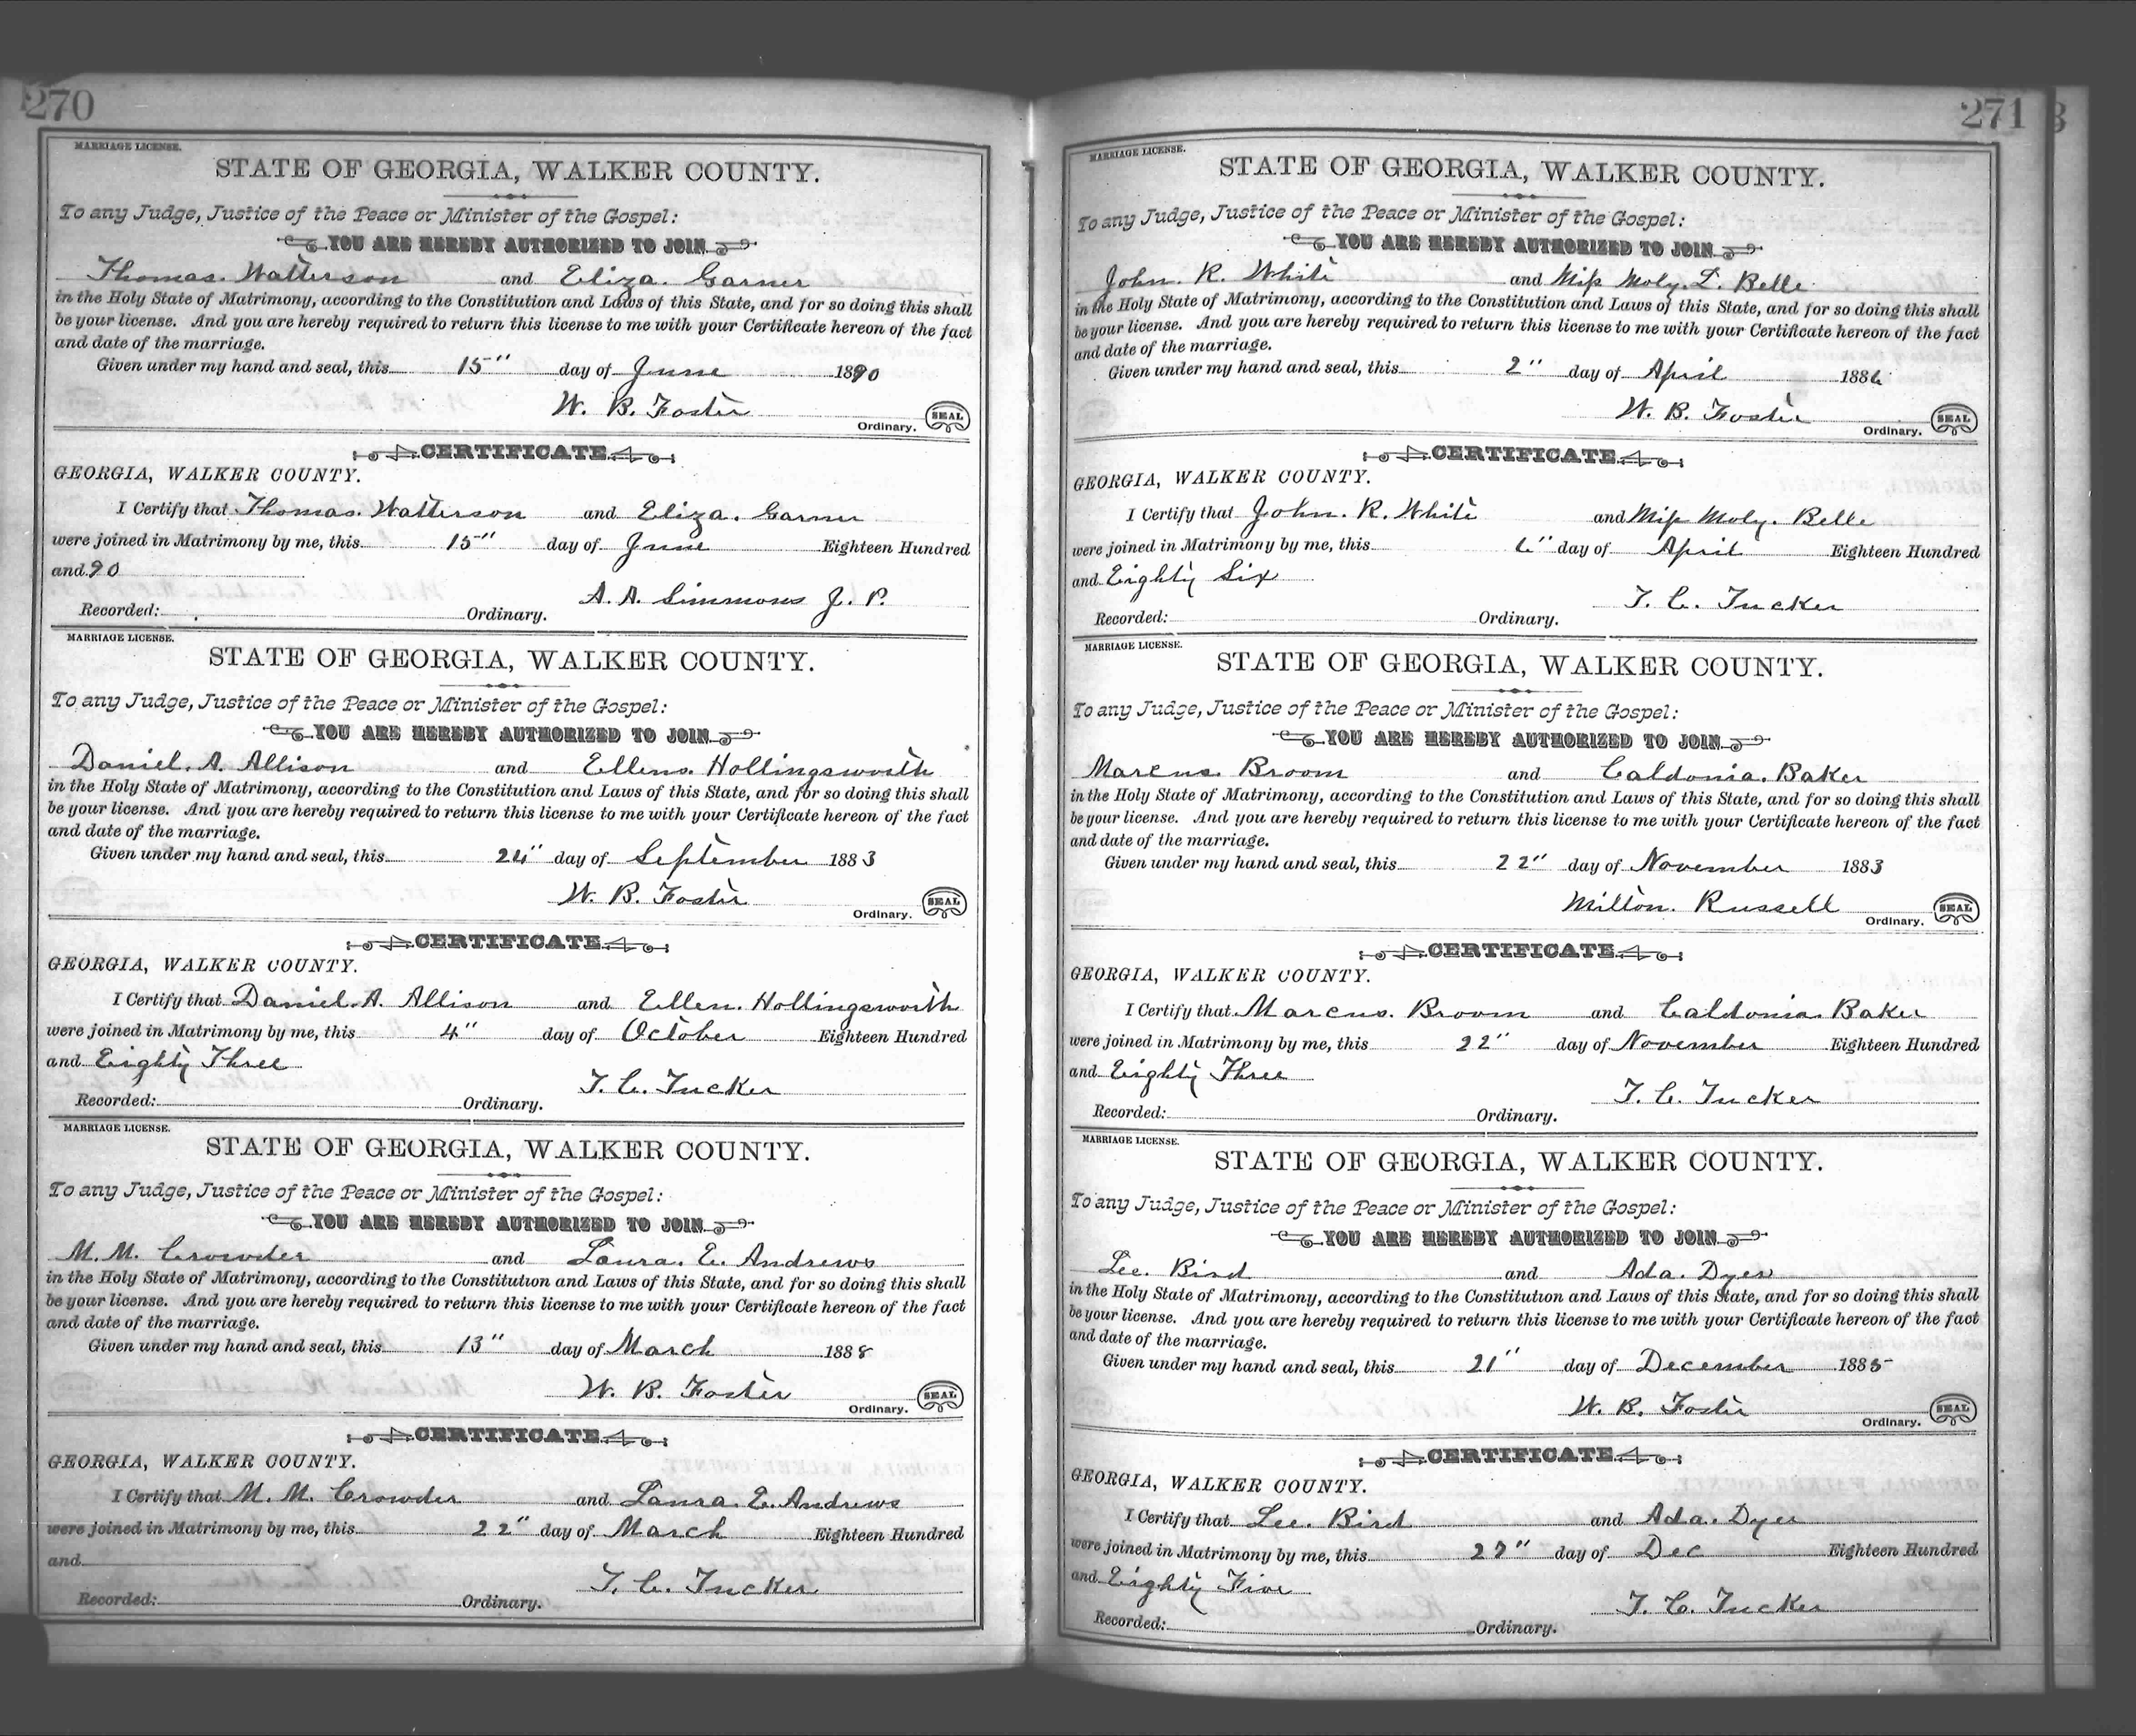 270
MARRIAGE LICENSE.
STATE OF GEORGIA, WALKER COUNTY.
To any Judge, Justice of the Peace or Minister of the Gospel:
YOU ARE HEREBY AUTHORIZED TO JOIN
Thomas. Watterson and Eliza. Garner
in the Holy State of Matrimony, according to the Constitution and Laws of this State, and for so doing this shall
be your license. And you are hereby required to return this license to me with your Certificate hereon of the fact
and date of the marriage.
Given under my hand and seal, this 15" day of June 1890
W. B. Foster
Ordinary. SEAL
CERTIFICATE
GEORGIA, WALKER COUNTY.
I Certify that Thomas. Watterson and Eliza. Garner
were joined in Matrimony by me, this 15" day of June Eighteen Hundred
and 90
A. A. Simmons J. P.
Recorded: Ordinary.
MARRIAGE LICENSE.
STATE OF GEORGIA, WALKER COUNTY.
To any Judge, Justice of the Peace or Minister of the Gospel:
YOU ARE HEREBY AUTHORIZED TO JOIN
Daniel. A. Allison and Ellens. Hollingsworth
in the Holy State of Matrimony, according to the Constitution and Laws of this State, and for so doing this shall
be your license. And you are hereby required to return this license to me with your Certificate hereon of the fact
and date of the marriage.
Given under my hand and seal, this 24" day of September 1883
W. B. Foster
Ordinary. SEAL
CERTIFICATE
GEORGIA, WALKER COUNTY.
I Certify that Daniel. A. Allison and Ellen. Hollingsworth
were joined in Matrimony by me, this 4" day of October Eighteen Hundred
and Eighty Three
T. C. Tucker
Recorded: Ordinary.
MARRIAGE LICENSE.
STATE OF GEORGIA, WALKER COUNTY.
To any Judge, Justice of the Peace or Minister of the Gospel:
YOU ARE HEREBY AUTHORIZED TO JOIN
M. M. Crowder and Laura. E. Andrews
in the Holy State of Matrimony, according to the Constitution and Laws of this State, and for so doing this shall
be your license. And you are hereby required to return this license to me with your Certificate hereon of the fact
and date of the marriage.
Given under my hand and seal, this 13" day of March 1888
W. B. Foster
Ordinary. SEAL
CERTIFICATE
GEORGIA, WALKER COUNTY.
I Certify that M. M. Crowder and Laura. E. Andrews
were joined in Matrimony by me, this 22" day of March Eighteen Hundred
and
T. C. Tucker
Recorded: Ordinary.
271
MARRIAGE LICENSE.
STATE OF GEORGIA, WALKER COUNTY.
To any Judge, Justice of the Peace or Minister of the Gospel:
YOU ARE HEREBY AUTHORIZED TO JOIN
John. R. White and Miss Moly. L. Belle
in the Holy State of Matrimony, according to the Constitution and Laws of this State, and for so doing this shall
be your license. And you are hereby required to return this license to me with your Certificate hereon of the fact
and date of the marriage.
Given under my hand and seal, this 2" day of April 1886
W. B. Foster
Ordinary. SEAL
CERTIFICATE
GEORGIA, WALKER COUNTY.
I Certify that John. R. White and Miss Moly. Belle
were joined in Matrimony by me, this 6" day of April Eighteen Hundred
and Eighty Six
T. C. Tucker
Recorded: Ordinary.
MARRIAGE LICENSE.
STATE OF GEORGIA, WALKER COUNTY.
To any Judge, Justice of the Peace or Minister of the Gospel:
YOU ARE HEREBY AUTHORIZED TO JOIN
Marcus. Broom and Caldonia. Baker
in the Holy State of Matrimony, according to the Constitution and Laws of this State, and for so doing this shall
be your license. And you are hereby required to return this license to me with your Certificate hereon of the fact
and date of the marriage.
Given under my hand and seal, this 22" day of November 1883
Milton. Russell
Ordinary. SEAL
CERTIFICATE
GEORGIA, WALKER COUNTY.
I Certify that Marcus. Broom and Caldonia. Baker
were joined in Matrimony by me, this 22" day of November Eighteen Hundred
and Eighty Three
T. C. Tucker
Recorded: Ordinary.
MARRIAGE LICENSE.
STATE OF GEORGIA, WALKER COUNTY.
To any Judge, Justice of the Peace or Minister of the Gospel:
YOU ARE HEREBY AUTHORIZED TO JOIN
Lee. Bird and Ada. Dyer
in the Holy State of Matrimony, according to the Constitution and Laws of this State, and for so doing this shall
be your license. And you are hereby required to return this license to me with your Certificate hereon of the fact
and date of the marriage.
Given under my hand and seal, this 21" day of December 1885
W. B. Foster
Ordinary. SEAL
CERTIFICATE
GEORGIA, WALKER COUNTY.
I Certify that Lee. Bird and Ada. Dyer
were joined in Matrimony by me, this 27" day of Dec Eighteen Hundred
and Eighty Five
T. C. Tucker
Recorded: Ordinary.